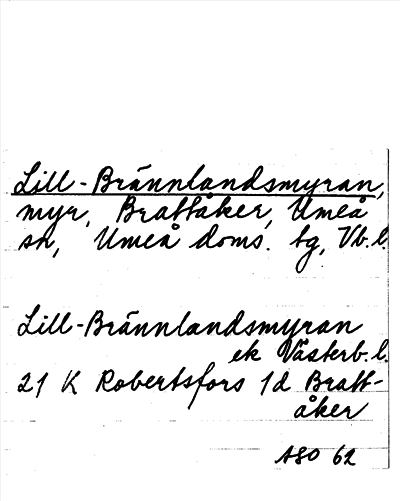 Lill-Brännlandsmyran,
myr, Brattåker, Umeå
sn, Umeå doms. tg, Vb.l.
Lill-Brännlandsmyran
ek Västerb.l.
21 K Robertsfors 1d Bratt-
åker
ASO 62